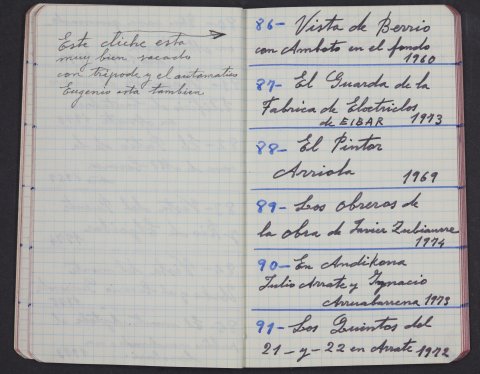 Este cliche esta
muy bien sacado
con tripode y el automatico
Eugenio esta tambien
86- Vista de Berrio
con Amboto en el fondo
1960
87- El Guarda de la
Fabrica de Electriclos
de EIBAR 1973
88- El Pintor
Arriola 1969
89- Los obreros de
la obra de Javier Zubiaurre
1974
90- En Andikona
Julio Arrate y Ignacio
Arruabarrena 1973
91- Los Quintos del
21-y-22 en Arrate 1972